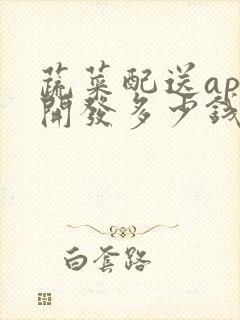 蔬菜配送ap
開發多少錢
白套路